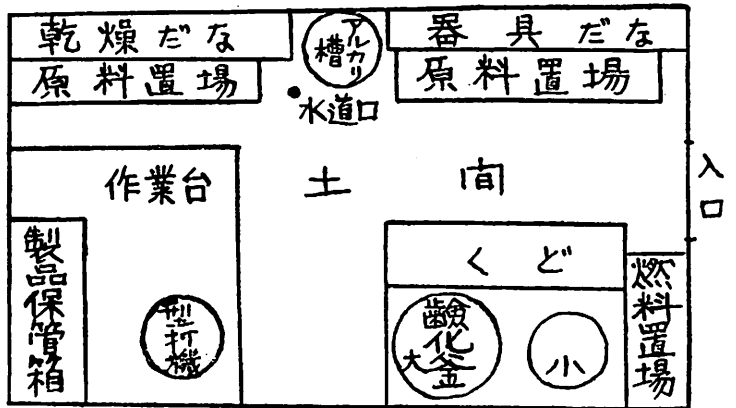 乾燥だな
アルカリ槽
器具だな
原料置場
原料置場
水道口
作業台
土間
入口
製品保管箱
型打機
くど
鹸化釜
大
小
燃料置場